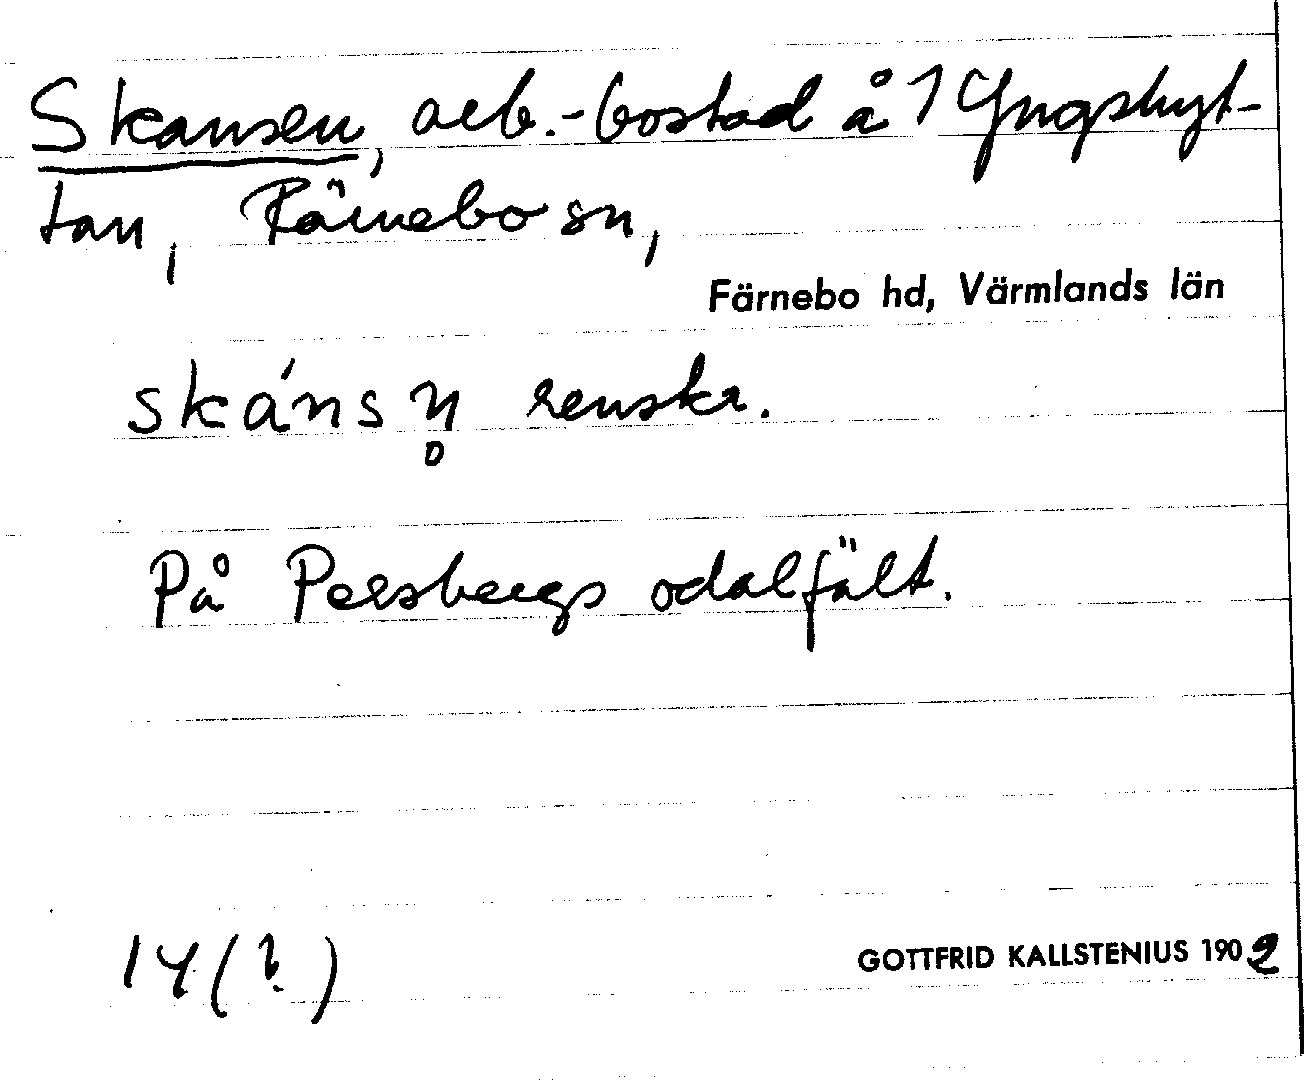 Skansen, arb.-bostad å 1 Yngshyt-
tan, Färnebo sn,
Färnebo hd, Värmlands län
skánsn̥ renskr.
På Persbergs odalfält.
14(?)
GOTTFRID KALLSTENIUS 1902